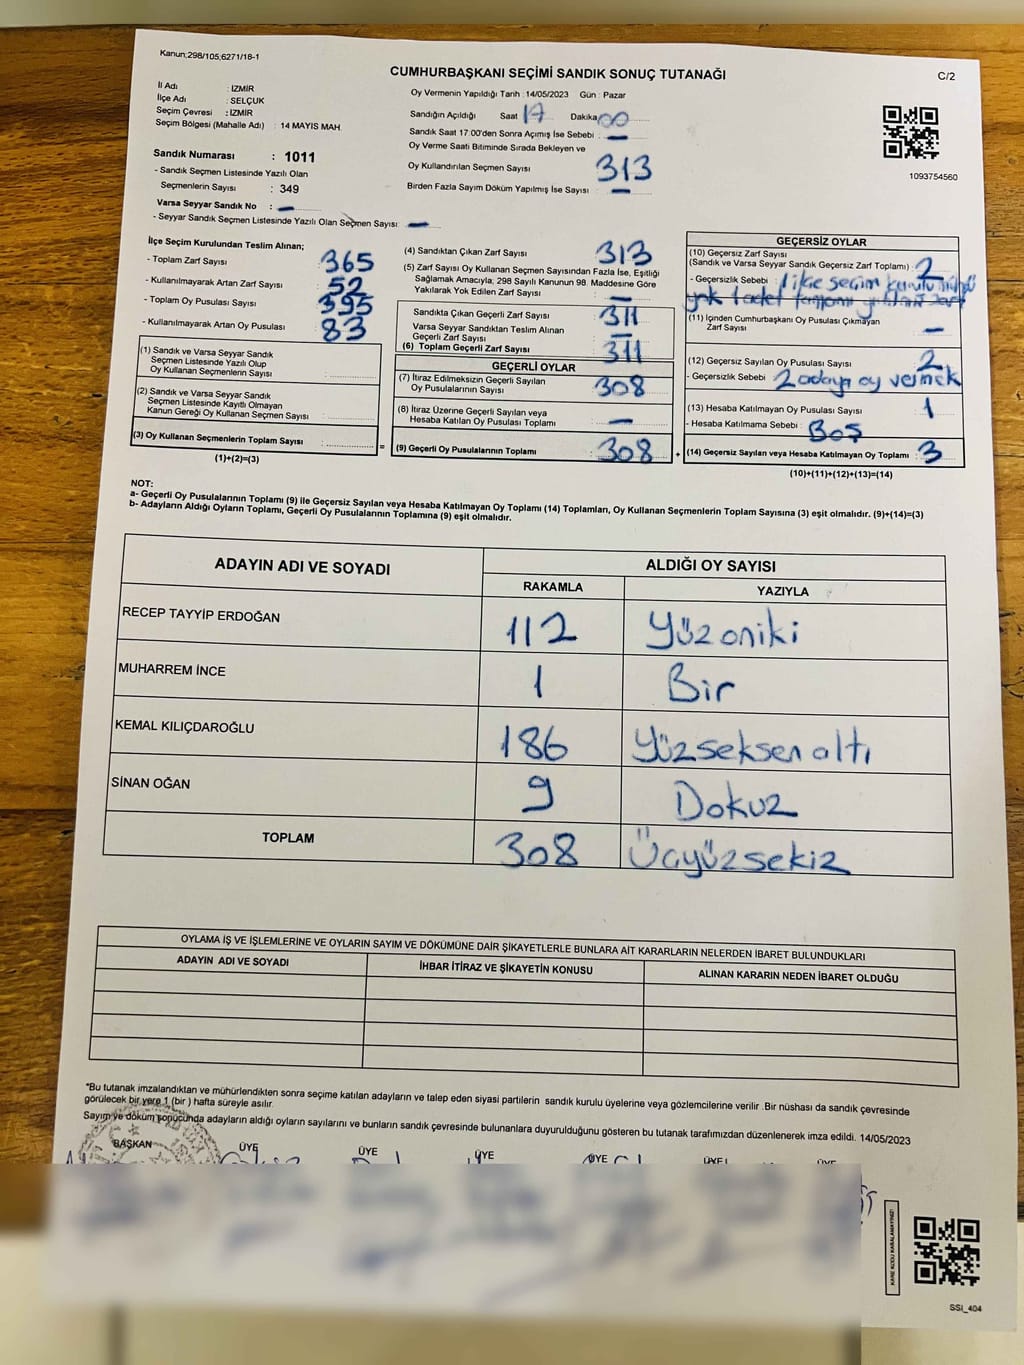 Kanun;298/105;6271/18-1
CUMHURBAŞKANI SEÇİMİ SANDIK SONUÇ TUTANAĞI
C/2
İl Adı : İZMİR
İlçe Adı : SELÇUK
Seçim Çevresi : İZMİR
Seçim Bölgesi (Mahalle Adı) : 14 MAYIS MAH.
Sandık Numarası : 1011
- Sandık Seçmen Listesinde Yazılı Olan
Seçmenlerin Sayısı : 349
Varsa Seyyar Sandık No : -
- Seyyar Sandık Seçmen Listesinde Yazılı Olan Seçmen Sayısı: -
Oy Vermenin Yapıldığı Tarih :14/05/2023 Gün : Pazar
Sandığın Açıldığı Saat 17 Dakika 00
Sandık Saat 17:00'den Sonra Açımış İse Sebebi : -
Oy Verme Saati Bitiminde Sırada Bekleyen ve
Oy Kullandırılan Seçmen Sayısı 313
Birden Fazla Sayım Döküm Yapılmış İse Sayısı : -
1093754560
İlçe Seçim Kurulundan Teslim Alınan;
- Toplam Zarf Sayısı : 365
- Kullanılmayarak Artan Zarf Sayısı : 52
- Toplam Oy Pusulası Sayısı : 395
- Kullanılmayarak Artan Oy Pusulası : 83
(1) Sandık ve Varsa Seyyar Sandık
Seçmen Listesinde Yazılı Olup
Oy Kullanan Seçmenlerin Sayısı :
(2) Sandık ve Varsa Seyyar Sandık
Seçmen Listesinde Kayıtlı Olmayan
Kanun Gereği Oy Kullanan Seçmen Sayısı :
(3) Oy Kullanan Seçmenlerin Toplam Sayısı :
(1)+(2)=(3)
(4) Sandıktan Çıkan Zarf Sayısı : 313
(5) Zarf Sayısı Oy Kullanan Seçmen Sayısından Fazla İse, Eşitliği
Sağlamak Amacıyla, 298 Sayılı Kanunun 98. Maddesine Göre
Yakılarak Yok Edilen Zarf Sayısı : -
Sandıkta Çıkan Geçerli Zarf Sayısı : 311
Varsa Seyyar Sandıktan Teslim Alınan
Geçerli Zarf Sayısı : -
(6) Toplam Geçerli Zarf Sayısı : 311
GEÇERLİ OYLAR
(7) İtiraz Edilmeksizin Geçerli Sayılan
Oy Pusulalarının Sayısı : 308
(8) İtiraz Üzerine Geçerli Sayılan veya
Hesaba Katılan Oy Pusulası Toplamı : -
= (9) Geçerli Oy Pusulalarının Toplamı : 308
GEÇERSİZ OYLAR
(10) Geçersiz Zarf Sayısı
(Sandık ve Varsa Seyyar Sandık Geçersiz Zarf Toplamı) : 2
- Geçersizlik Sebebi : 1 ilçe seçim kurulu mührü
yok 1 adet
(11) İçinden Cumhurbaşkanı Oy Pusulası Çıkmayan
Zarf Sayısı : -
(12) Geçersiz Sayılan Oy Pusulası Sayısı : 2
- Geçersizlik Sebebi : 2 adaya oy vermek
(13) Hesaba Katılmayan Oy Pusulası Sayısı : 1
- Hesaba Katılmama Sebebi : BOŞ
+ (14) Geçersiz Sayılan veya Hesaba Katılmayan Oy Toplamı : 3
(10)+(11)+(12)+(13)=(14)
NOT:
a- Geçerli Oy Pusulalarının Toplamı (9) ile Geçersiz Sayılan veya Hesaba Katılmayan Oy Toplamı (14) Toplamları, Oy Kullanan Seçmenlerin Toplam Sayısına (3) eşit olmalıdır. (9)+(14)=(3)
b- Adayların Aldığı Oyların Toplamı, Geçerli Oy Pusulalarının Toplamına (9) eşit olmalıdır.
ADAYIN ADI VE SOYADI
ALDIĞI OY SAYISI
RAKAMLA YAZIYLA
RECEP TAYYİP ERDOĞAN 112 Yüzoniki
MUHARREM İNCE 1 Bir
KEMAL KILIÇDAROĞLU 186 Yüzseksenaltı
SİNAN OĞAN 9 Dokuz
TOPLAM 308 Üçyüzsekiz
OYLAMA İŞ VE İŞLEMLERİNE VE OYLARIN SAYIM VE DÖKÜMÜNE DAİR ŞİKAYETLERLE BUNLARA AİT KARARLARIN NELERDEN İBARET BULUNDUKLARI
ADAYIN ADI VE SOYADI İHBAR İTİRAZ VE ŞİKAYETİN KONUSU ALINAN KARARIN NEDEN İBARET OLDUĞU
*Bu tutanak imzalandıktan ve mühürlendikten sonra seçime katılan adayların ve talep eden siyasi partilerin sandık kurulu üyelerine veya gözlemcilerine verilir .Bir nüshası da sandık çevresinde
görülecek bir yere 1 (bir ) hafta süreyle asılır.
Sayım ve döküm sonucunda adayların aldığı oyların sayılarını ve bunların sandık çevresinde bulunanlara duyurulduğunu gösteren bu tutanak tarafımızdan düzenlenerek imza edildi. 14/05/2023
BAŞKAN ÜYE ÜYE ÜYE ÜYE ÜYE ÜYE
KARE KODU KARALAMAYINIZ!
SSİ_404